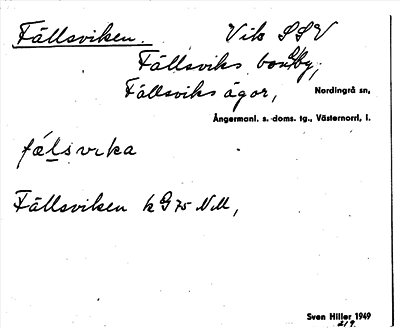 Fällsviken. Vik SSV
Fällsviks by,
Fällsviks ägor, Nordingrå sn,
Ångermanl. s. doms. tg., Västernorrl. l.
fælsvika
Fällsviken k G75 NM,
Sven Hiller 1949